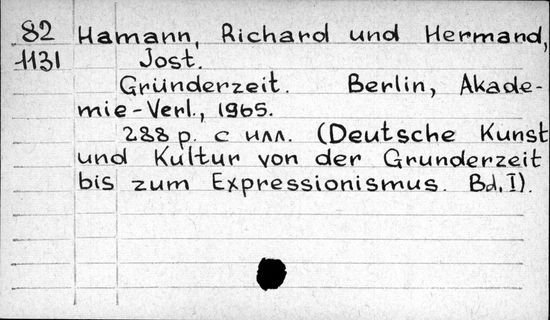 82 Hamann, Richard und Hermand,
1131 Jost.
Gründerzeit. Berlin, Akade-
mie-Verl., 1965.
288 p. с илл. (Deutsche Kunst
und Kultur von der Grunderzeit
bis zum Expressionismus. Bd. I).